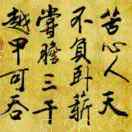 苦心人天
不負卧薪
嘗膽三千
越甲可吞